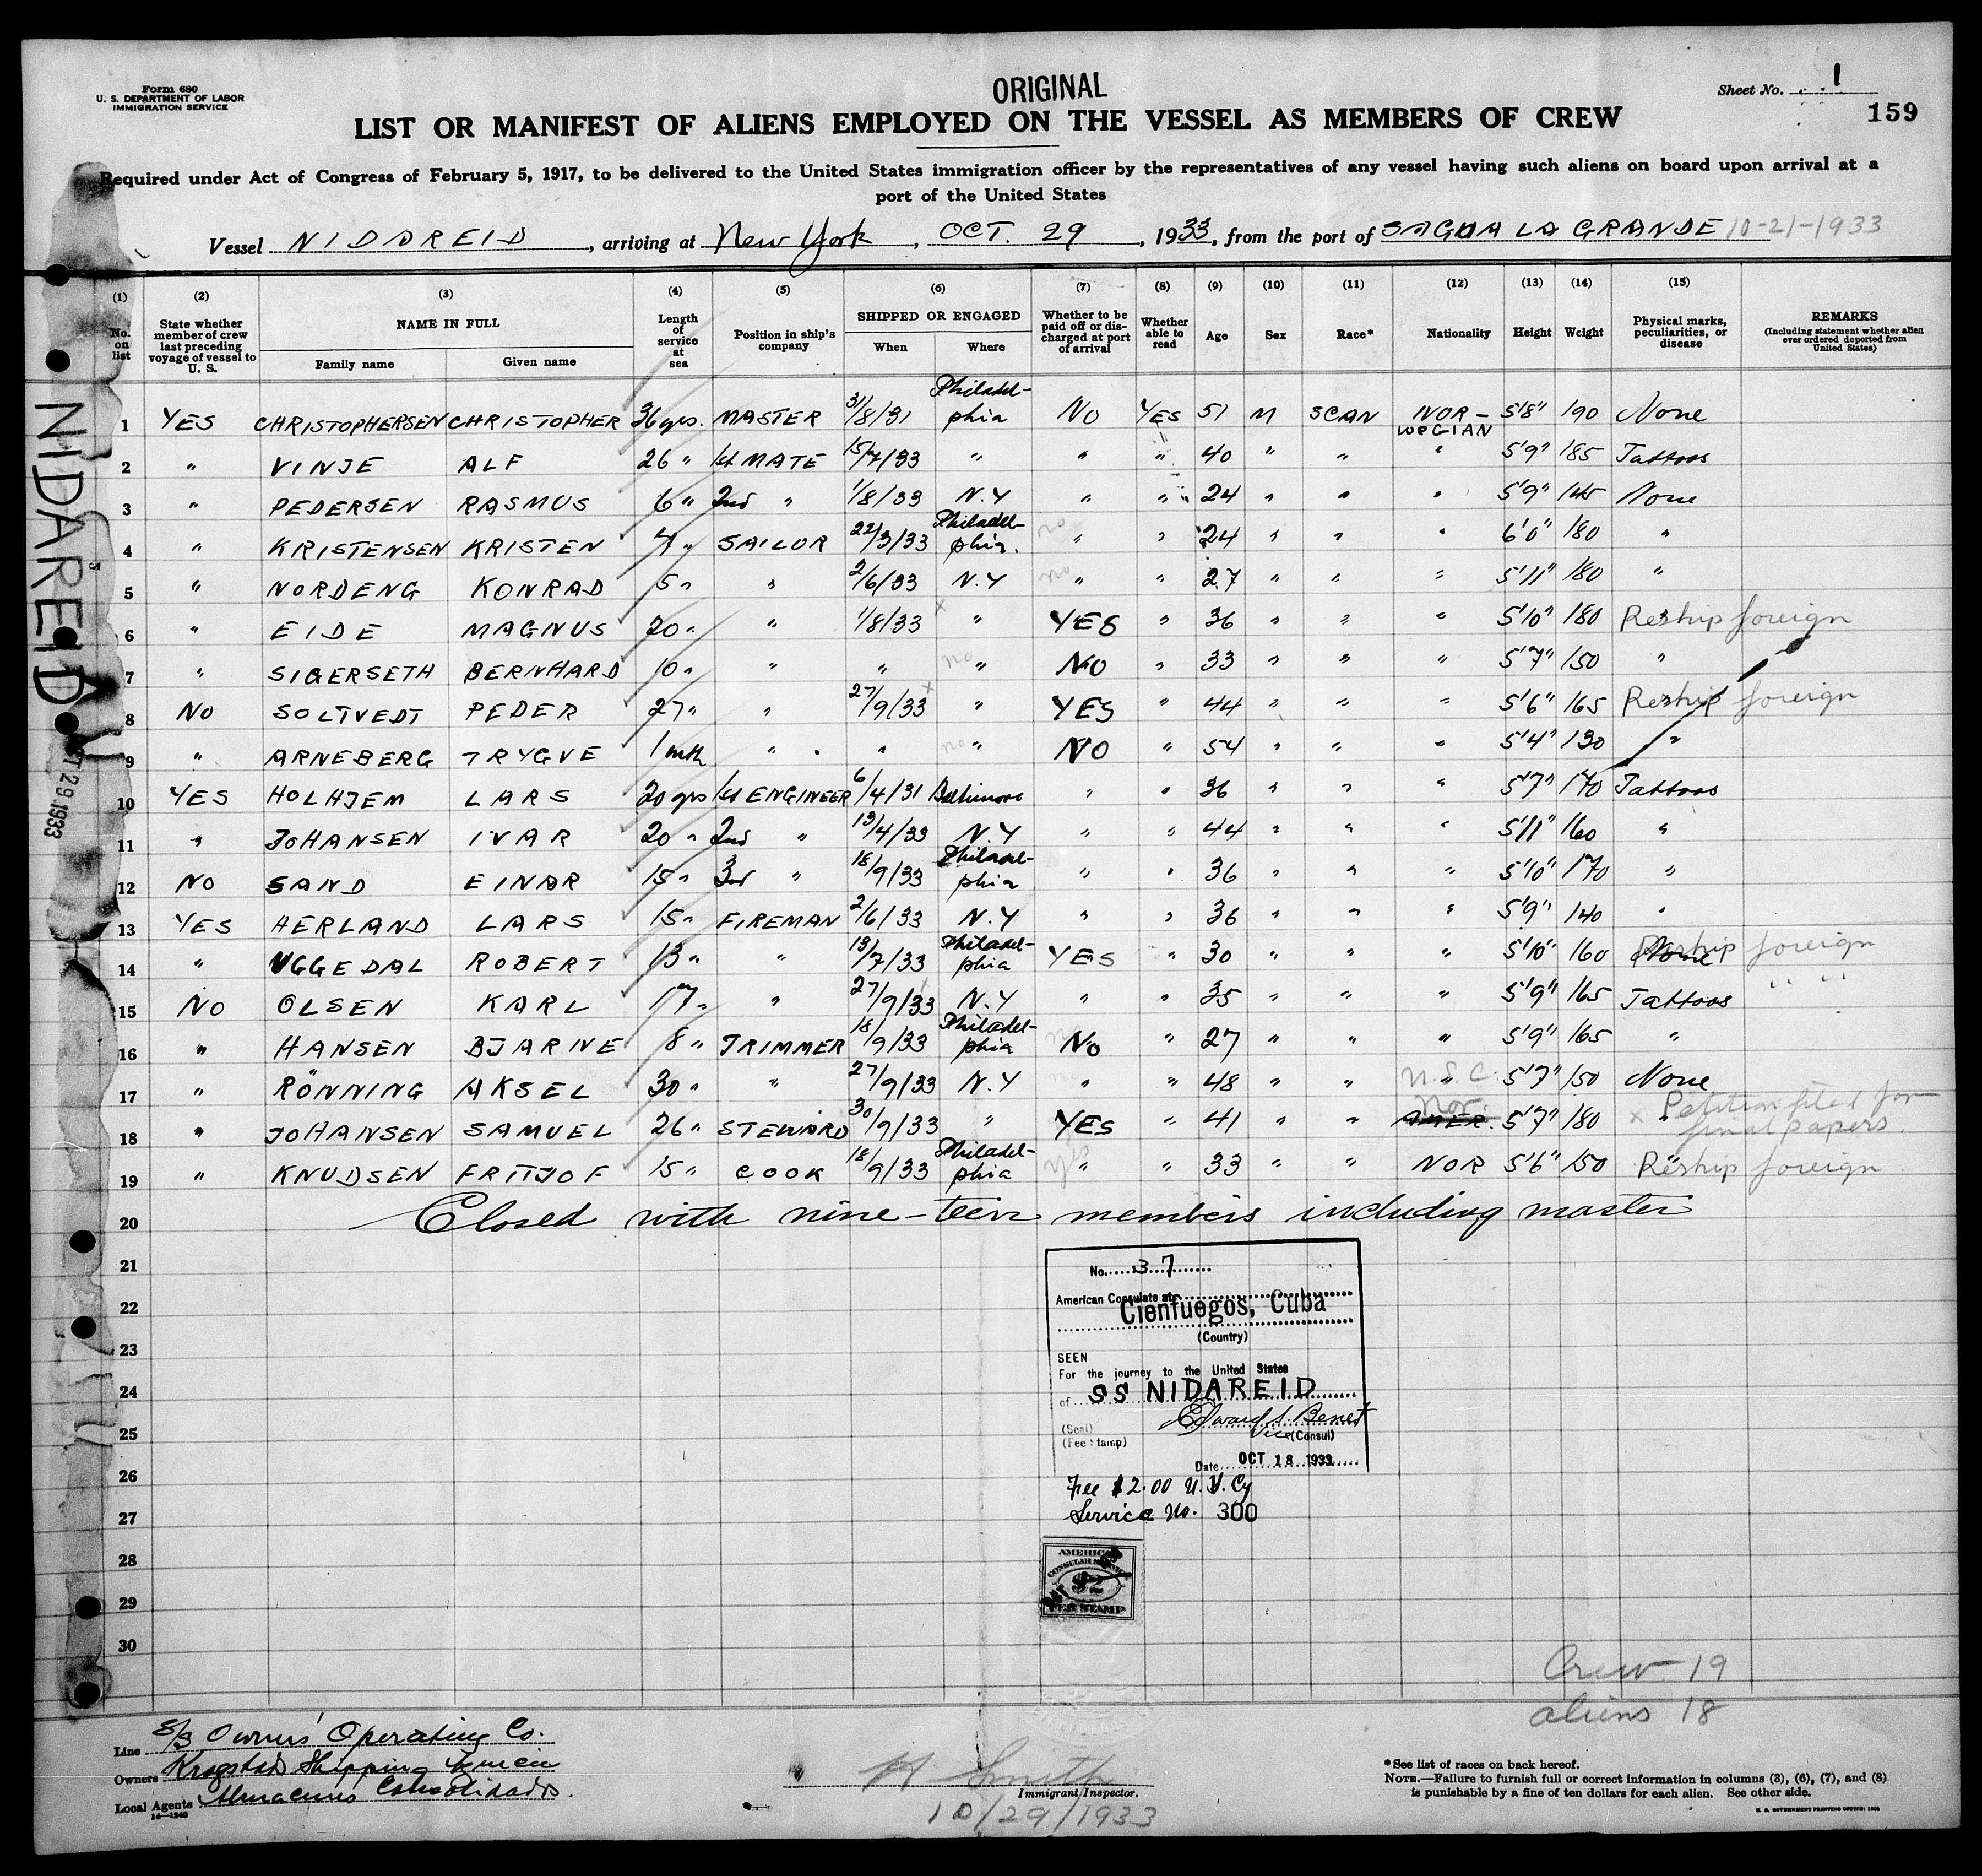 Form 680
U. S. DEPARTMENT OF LABOR
IMMIGRATION SERVICE
ORIGINAL
Sheet No. 1
159
LIST OR MANIFEST OF ALIENS EMPLOYED ON THE VESSEL AS MEMBERS OF CREW
Required under Act of Congress of February 5, 1917, to be delivered to the United States immigration officer by the representatives of any vessel having such aliens on board upon arrival at a
port of the United States
Vessel NIDAREID, arriving at New York, OCT. 29, 1933, from the port of SAGUA LA GRANDE 10-21-1933
(1) (2) (3) (4) (5) (6) (7) (8) (9) (10) (11) (12) (13) (14) (15)
No. on list
State whether member of crew last preceding voyage of vessel to U. S.
NAME IN FULL
Family name Given name
Length of service at sea
Position in ship's company
SHIPPED OR ENGAGED
When Where
Whether to be paid off or discharged at port of arrival
Whether able to read
Age
Sex
Race*
Nationality
Height
Weight
Physical marks, peculiarities, or disease
REMARKS
(Including statement whether alien ever ordered deported from United States)
1 YES CHRISTOPHERSEN CHRISTOPHER 36 yrs. MASTER 31/8/31 Philadelphia NO YES 51 M SCAN NORWEGIAN 5'8" 190 None
2 " VINJE ALF 26 " 1st MATE 15/7/33 " " " 40 " " " 5'9" 185 Tattoos
3 " PEDERSEN RASMUS 6 " 2nd " 1/8/33 N.Y " " 24 " " " 5'9" 145 None
4 " KRISTENSEN KRISTEN 7 " SAILOR 22/3/33 Philadelphia. no " " 24 " " " 6'0" 180 "
5 " NORDENG KONRAD 5 " " 2/6/33 N.Y no " " 27 " " " 5'11" 180 "
6 " EIDE MAGNUS 20 " " 1/8/33 x " YES " 36 " " " 5'10" 180 Reship foreign
7 " SIGERSETH BERNHARD 10 " " " no " NO " 33 " " " 5'7" 150 "
8 NO SOLTVEDT PEDER 27 " " 27/9/33 x " YES " 44 " " " 5'6" 165 Reship foreign
9 " ARNEBERG TRYGVE 1 mth " " no " NO " 54 " " " 5'4" 130 "
10 YES HOLHJEM LARS 20 yrs 1st ENGINEER 6/4/31 Baltimore " " 36 " " " 5'7" 170 Tattoos
11 " JOHANSEN IVAR 20 " 2nd " 13/4/33 N.Y " " 44 " " " 5'11" 160 "
12 NO SAND EINAR 15 " 3rd " 18/9/33 Philadelphia " " 36 " " " 5'10" 170 "
13 YES HERLAND LARS 15 " FIREMAN 2/6/33 N.Y " " 36 " " " 5'9" 140 "
14 " UGGEDAL ROBERT 13 " " 13/7/33 Philadelphia YES " 30 " " " 5'10" 160 None Reship foreign
15 NO OLSEN KARL 17 " " 27/9/33 N.Y " " 35 " " " 5'9" 165 Tattoos " "
16 " HANSEN BJARNE 8 " TRIMMER 18/9/33 Philadelphia No " 27 " " " 5'9" 165 "
17 " RÖNNING AKSEL 30 " " 27/9/33 N.Y " " 48 " " U.S.C. 5'7" 150 None
18 " JOHANSEN SAMUEL 26 " STEWARD 30/9/33 " YES " 41 " " Nor. AMER. 5'7" 180 x " Petition filed for final papers.
19 " KNUDSEN FRITJOF 15 " COOK 18/9/33 Philadelphia yes " " 33 " " NOR 5'6" 150 Reship foreign
20 Closed with nine-teen members including master
21
22
23
24
25
26
27
28
29
30
NIDAREID
OCT 29 1933
No. 37
American Consulate at
Cienfuegos, Cuba
(Country)
SEEN
For the journey to the United States
of SS NIDAREID
Edward S. Benet
(Seal) Vice (Consul)
(Fee stamp)
Date OCT 18 1933
Fee $2.00 U.S. Cy
Service No. 300
AMERICAN
CONSULAR SERVICE
$2
FEE STAMP
Crew 19
aliens 18
Line S/S Owners' Operating Co.
Owners Krogstads Shipping
Local Agents Almacenes Consolidados.
14—1240
H Smith
Immigrant Inspector.
10/29/1933
*See list of races on back hereof.
NOTE.—Failure to furnish full or correct information in columns (3), (6), (7), and (8)
is punishable by a fine of ten dollars for each alien. See other side.